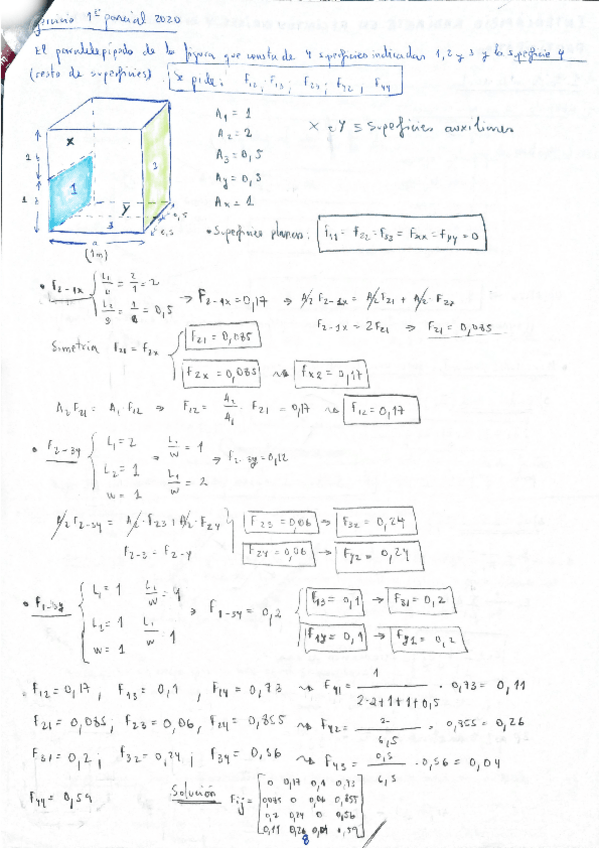 1er parcial 2020
El paralelepípedo de la figura que consta de 4 superficies indicadas 1, 2 y 3 y la superficie 4
(resto de superficies). Se pide: F12, F13, F24, F42, F44
A1 = 1
A2 = 2
A3 = 0,5
Ay = 0,5
Ax = 1
X e Y ≡ Superficies auxiliares
X
1
3
Y
3
2
1
0,5
0,5
a
(1m)
• Superficies planas: F11 = F22 = F33 = Fxx = Fyy = 0
• F2-1x { L1/D = 2/1 = 2
L2/D = 1/ = 0,5
→ F2-1x = 0,17 ⇒ A2 F2-1x = A2 F21 + A2 F2x
F2-1x = 2F21 ⇒ F21 = 0,085
Simetría F21 = F2x { F21 = 0,085
F2x = 0,085 → Fx2 = 0,17
A2 F21 = A1 · F12 ⇒ F12 = A2/A1 · F21 = 0,17 → F12 = 0,17
• F2-3y { L1 = 2
L2 = 1
W = 1
L1/W = 1
L1/W = 2
⇒ F2-3y = 0,12
A2 F2-3y = A2 · F23 + A2 · F2y
F2-3 = F2-y
F23 = 0,06 → F32 = 0,24
F2y = 0,06 → Fy2 = 0,24
• F1-3y { L1 = 1
L2 = 1
W = 1
L1/W = 1
L1/W = 1
⇒ F1-3y = 0,2
F13 = 0,1 → F31 = 0,2
F1y = 0,1 → Fy1 = 0,2
F12 = 0,17, F13 = 0,1, F14 = 0,73 → F41 = 1/(2·2+1+1+0,5) · 0,73 = 0,11
F21 = 0,085; F23 = 0,06, F24 = 0,855 → F42 = 2/6,5 · 0,855 = 0,26
F31 = 0,2; F32 = 0,24; F34 = 0,56 → F43 = 0,5/6,5 · 0,56 = 0,04
F44 = 0,59
Solución
Fij = [ 0 0,17 0,1 0,73
0,085 0 0,06 0,855
0,2 0,24 0 0,56
0,11 0,26 0,04 0,59 ]
8